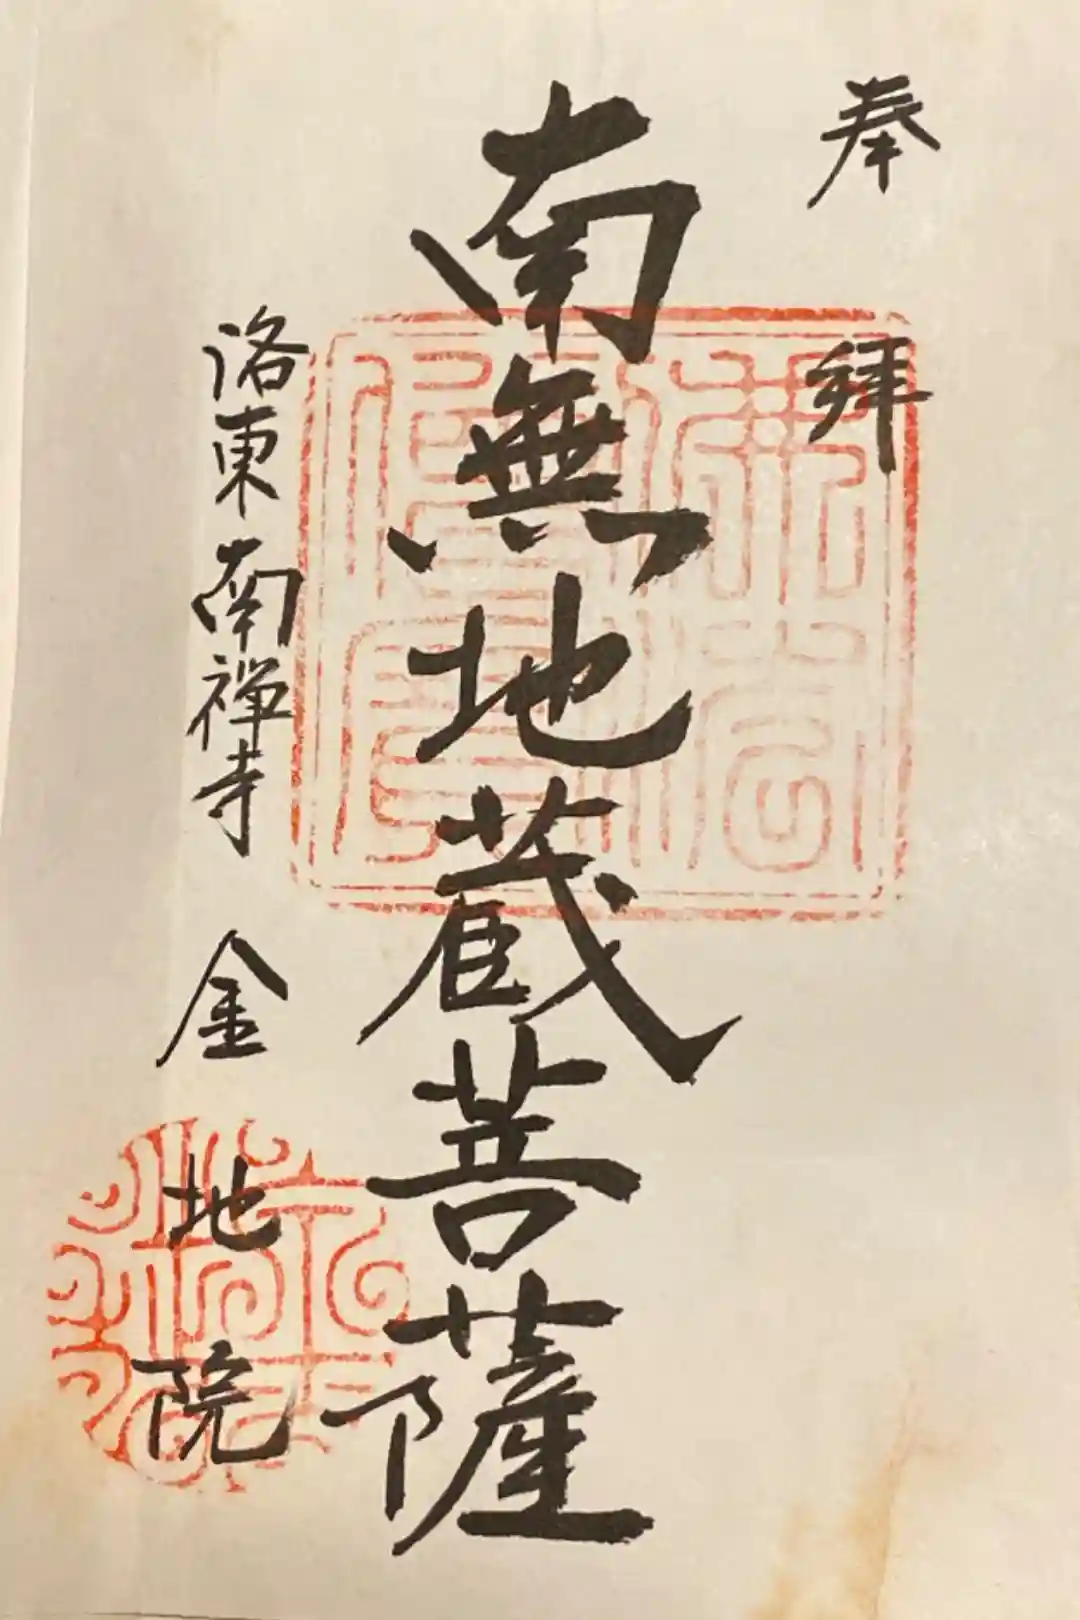 奉拜
南無地蔵菩薩
洛東南禅寺 金地院